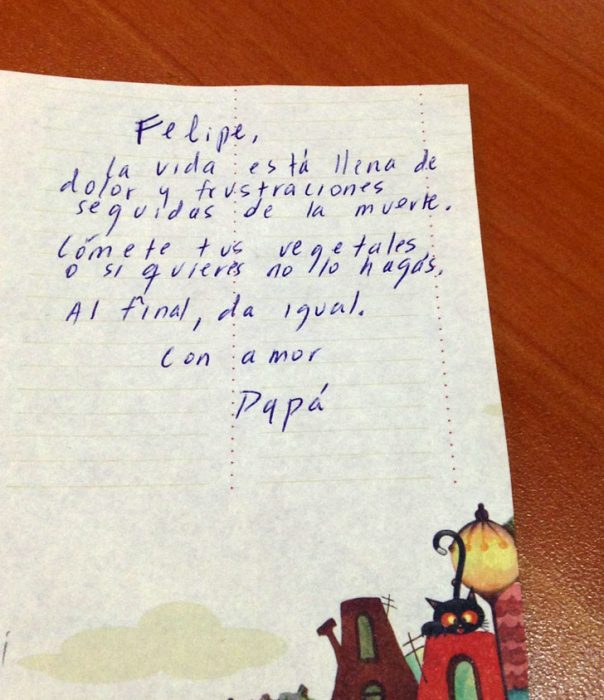 Felipe,
la vida está llena de
dolor y frustraciones
seguidas de la muerte.
Cómete tus vegetales,
o si quieres no lo hagas.
Al final, da igual.
Con amor
Papá